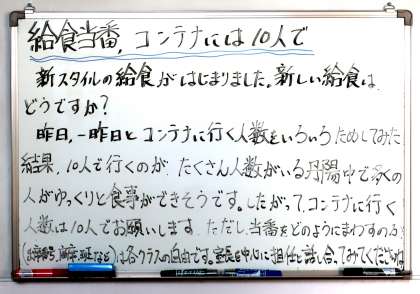 給食当番、コンテナには10人で
新スタイルの給食がはじまりました。新しい給食は、
どうですか?
昨日、一昨日とコンテナに行く人数をいろいろためしてみた
結果、10人で行くのが、たくさん人数がいる丹陽中で多くの
人がゆっくりと食事ができそうです。したがって、コンテナに行く
人数は10人でお願いします。ただし、当番をどのようにまわすのか
(出席番号、班など)は各クラスの自由です。室長を中心に担任と話し合ってみてくださいね